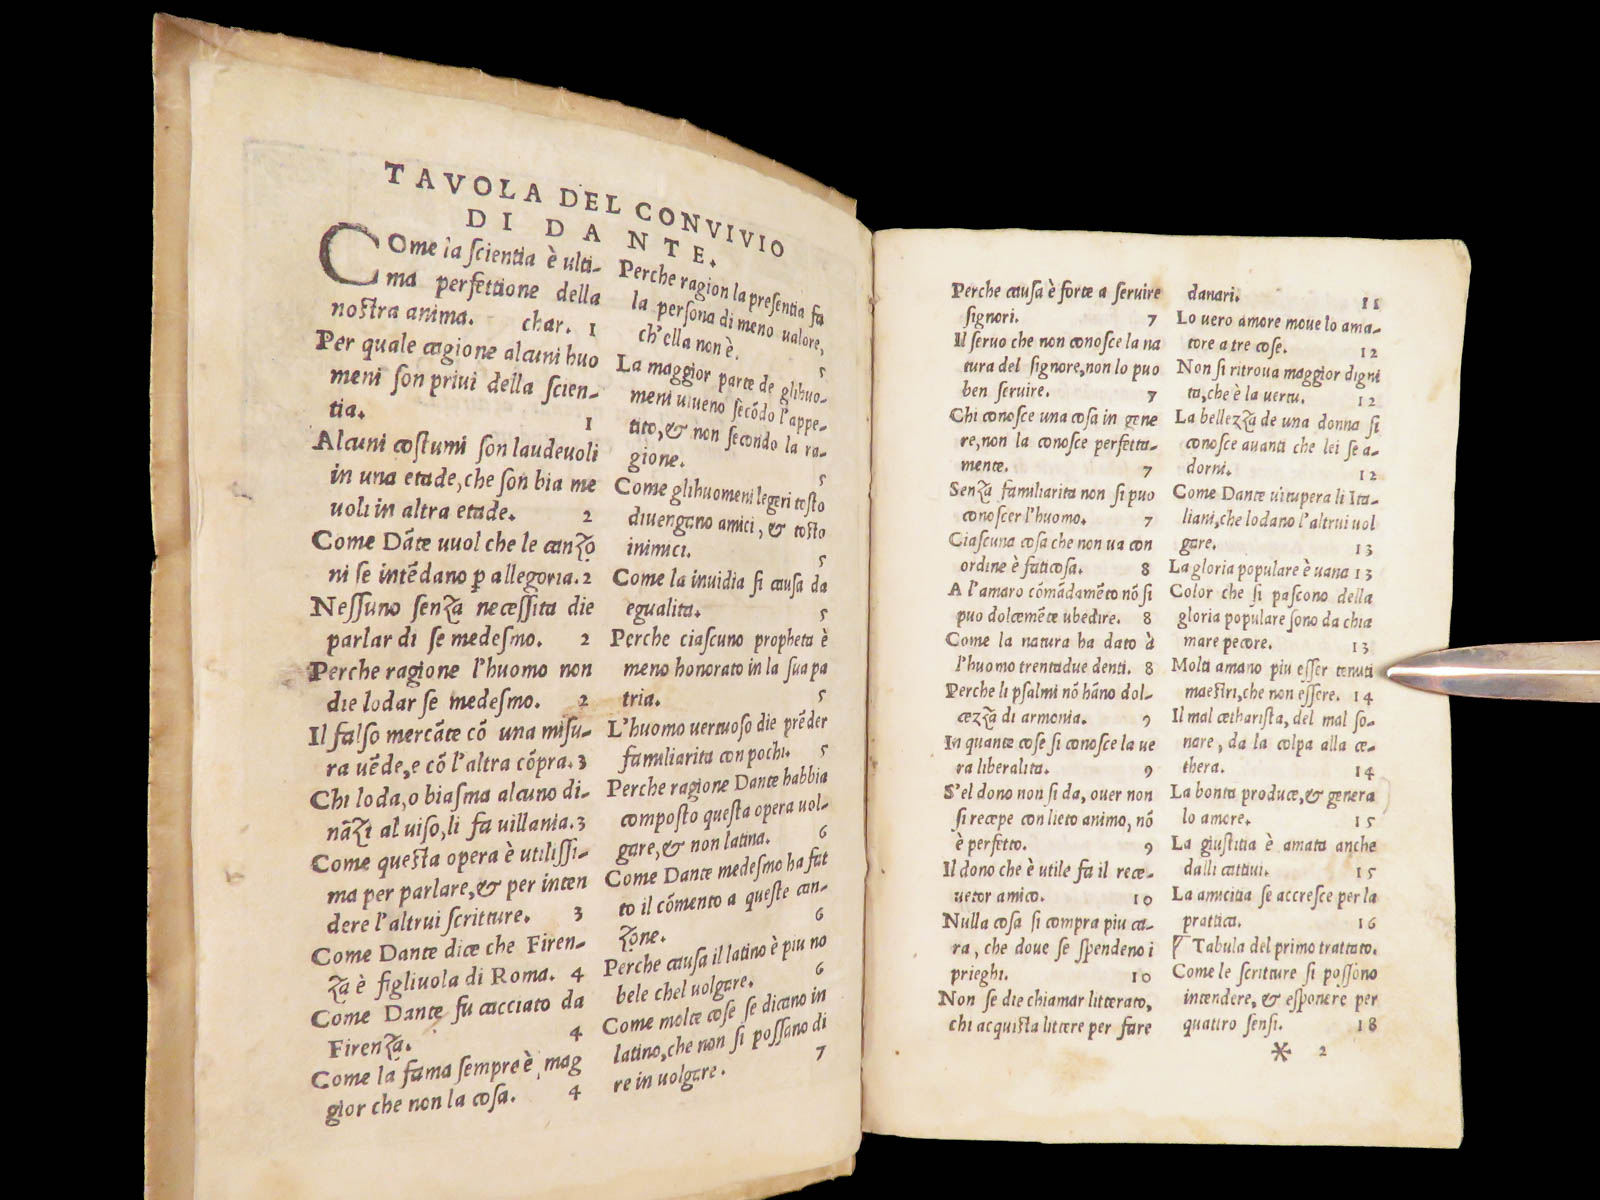 TAVOLA DEL CONVIVIO
DI DANTE.
COme la scientia è ulti-
ma perfettione della
nostra anima. char. 1
Per quale cagione alcuni huo
meni son priui della scien-
tia. 1
Alcuni costumi son laudeuoli
in una etade, che son bia me
uoli in altra etade. 2
Come Dāte uuol che le canzo
ni se intēdano ꝑ allegoria. 2
Nessuno senza necessita die
parlar di se medesmo. 2
Perche ragione l'huomo non
die lodar se medesmo. 2
Il falso mercāte cō una misu-
ra uēde, e cō l'altra cōpra. 3
Chi loda, o biasma alcuno di-
nāzi al uiso, li fa uillania. 3
Come questa opera è utilissi-
ma per parlare, & per inten
dere l'altrui scritture. 3
Come Dante dice che Firen-
za è figliuola di Roma. 4
Come Dante fu cacciato da
Firenza. 4
Come la fama sempre è mag
gior che non la cosa. 4
Perche ragion la presentia fa
la persona di meno ualore,
ch'ella non è. 5
La maggior parte de glihuo-
meni uiueno secōdo l'appe-
tito, & non secondo la ra-
gione. 5
Come glihuomeni legeri tosto
diuengano amici, & tosto
inimici. 5
Come la inuidia si causa da
egualita. 5
Perche ciascuno propheta è
meno honorato in la sua pa
tria. 5
L'huomo uertuoso die prēder
familiarita con pochi. 5
Perche ragione Dante habbia
composto questa opera uol-
gare, & non latina. 6
Come Dante medesmo ha fat
to il cōmento a queste can-
zone. 6
Perche causa il latino è piu no
bele chel uolgare. 6
Come molte cose se dicano in
latino, che non si possano di
re in uolgare. 7
Perche causa è forte a seruire
signori. 7
Il seruo che non conosce la na
tura del signore, non lo puo
ben seruire. 7
Chi conosce una cosa in gene
re, non la conosce perfetta-
mente. 7
Senza familiarita non si puo
conoscer l'huomo. 7
Ciascuna cosa che non ua con
ordine è faticosa. 8
A l'amaro cōmādamēto nō si
puo dolcemēte ubedire. 8
Come la natura ha dato à
l'huomo trentadue denti. 8
Perche li psalmi nō hāno dol-
cezza di armonia. 9
In quante cose si conosce la ue
ra liberalita. 9
S'el dono non si da, ouer non
si recepe con lieto animo, nō
è perfetto. 9
Il dono che è utile fa il rece-
uetor amico. 10
Nulla cosa si compra piu ca-
ra, che doue se spendeno i
prieghi. 10
Non se die chiamar litterato,
chi acquista littere per fare
danari. 11
Lo uero amore moue lo ama-
tore a tre cose. 12
Non si ritroua maggior digni
ta, che è la uertu. 12
La bellezza de una donna si
conosce auanti che lei se a-
dorni. 12
Come Dante uitupera li Ita-
liani, che lodano l'altrui uol
gare. 13
La gloria populare è uana 13
Color che si pascono della
gloria populare sono da chia
mare pecore. 13
Molti amano piu esser tenuti
maestri, che non essere. 14
Il mal cetharista, del mal so-
nare, da la colpa alla ce-
thera. 14
La bonta produce, & genera
lo amore. 15
La giustitia è amata anche
dalli cattiui. 15
La amicitia se accresce per la
prattica. 16
Tabula del primo trattato.
Come le scritture si possono
intendere, & esponere per
quattro sensi. 18
* 2